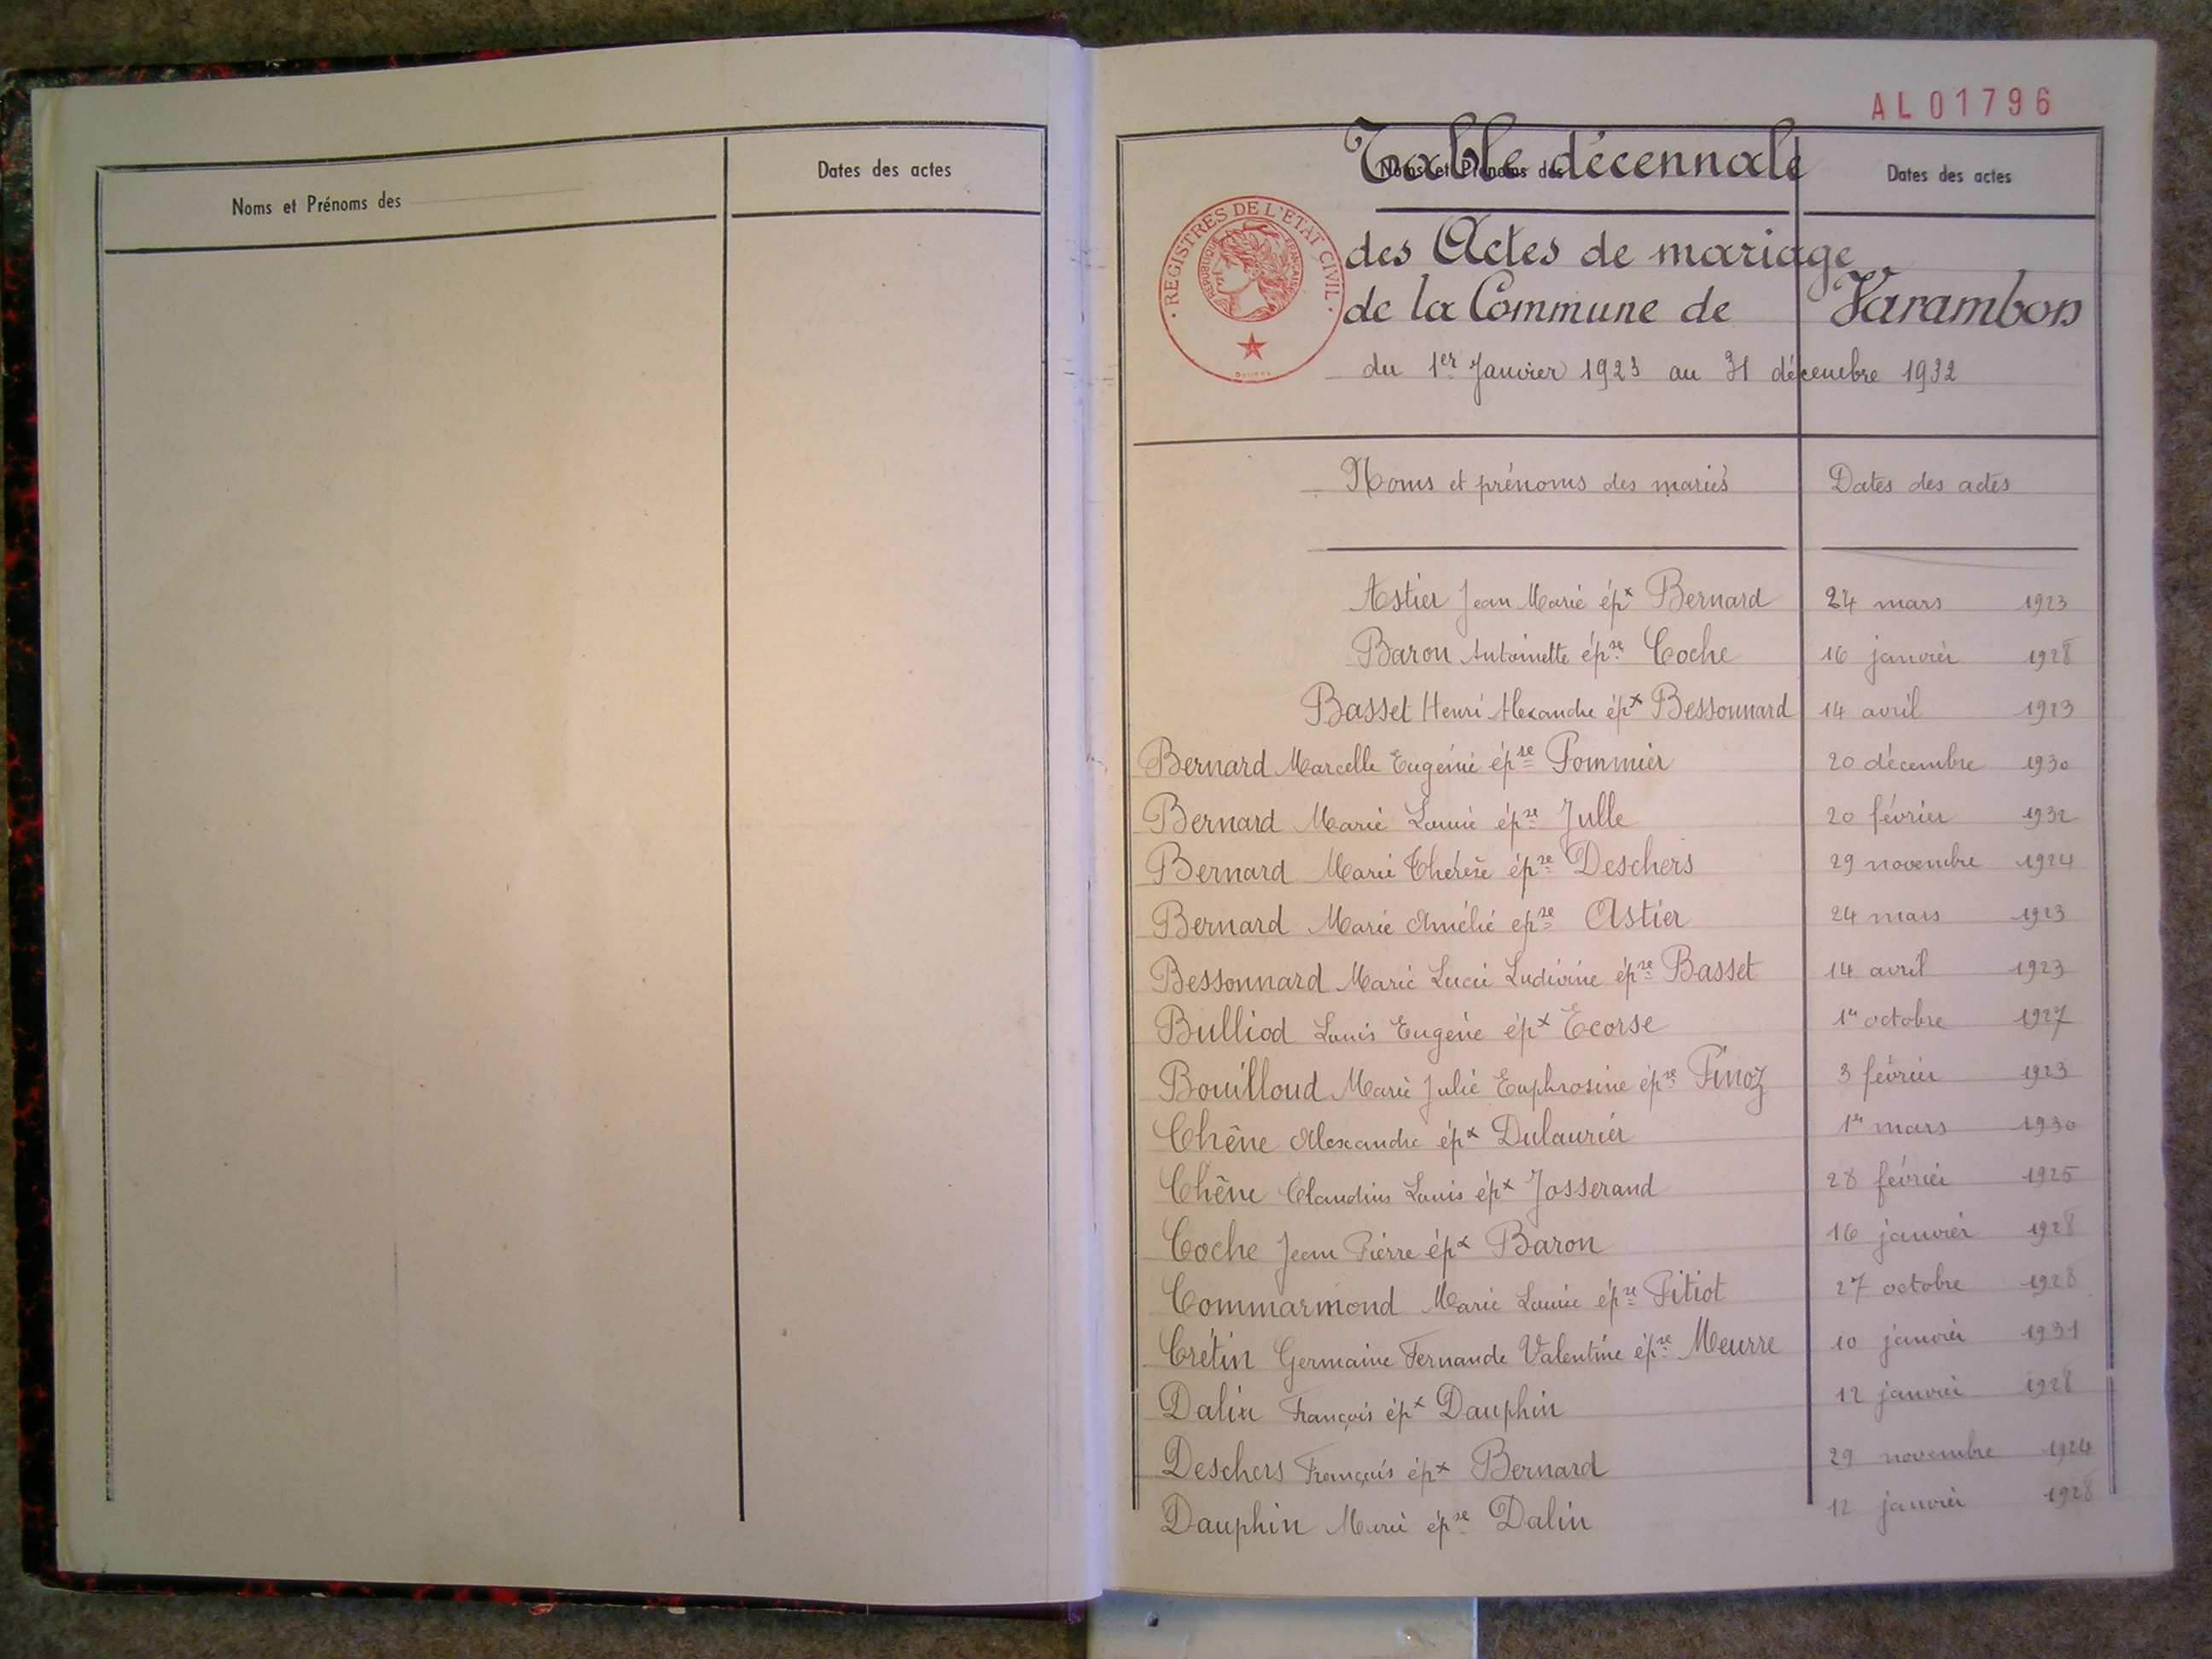 Noms et Prénoms des
Dates des actes
AL01796
Table décennale
Noms et Prénoms des
Dates des actes
REGISTRES DE L'ETAT CIVIL
REPUBLIQUE FRANCAISE
des Actes de mariage
de la Commune de Varambon
du 1er Janvier 1923 au 31 décembre 1932
Noms et prénoms des mariés Dates des actes
Astier Jean Marie épx Bernard 24 mars 1923
Baron Antoinette épse Coche 16 janvier 1928
Basset Henri Alexandre épx Bessonnard 14 avril 1923
Bernard Marcelle Eugénie épse Pommier 20 décembre 1930
Bernard Marie Louise épse Julle 20 février 1932
Bernard Marie Thérèse épse Deschers 29 novembre 1924
Bernard Marie Amélie épse Astier 24 mars 1923
Bessonnard Marie Lucie Ludivine épse Basset 14 avril 1923
Bulliod Louis Eugène épx Ecorse 1er octobre 1927
Bouilloud Marie Julie Euphrosine épse Pinoz 3 février 1923
Chêne Alexandre épx Dulaurier 1er mars 1930
Chêne Claudius Louis épx Josserand 28 février 1925
Coche Jean Pierre épx Baron 16 janvier 1928
Commarmond Marie Louise épse Pitiot 27 octobre 1928
Crétin Germaine Fernande Valentine épse Meurre 10 janvier 1931
Dalin François épx Dauphin 12 janvier 1928
Deschers François épx Bernard 29 novembre 1924
Dauphin Marie épse Dalin 12 janvier 1928